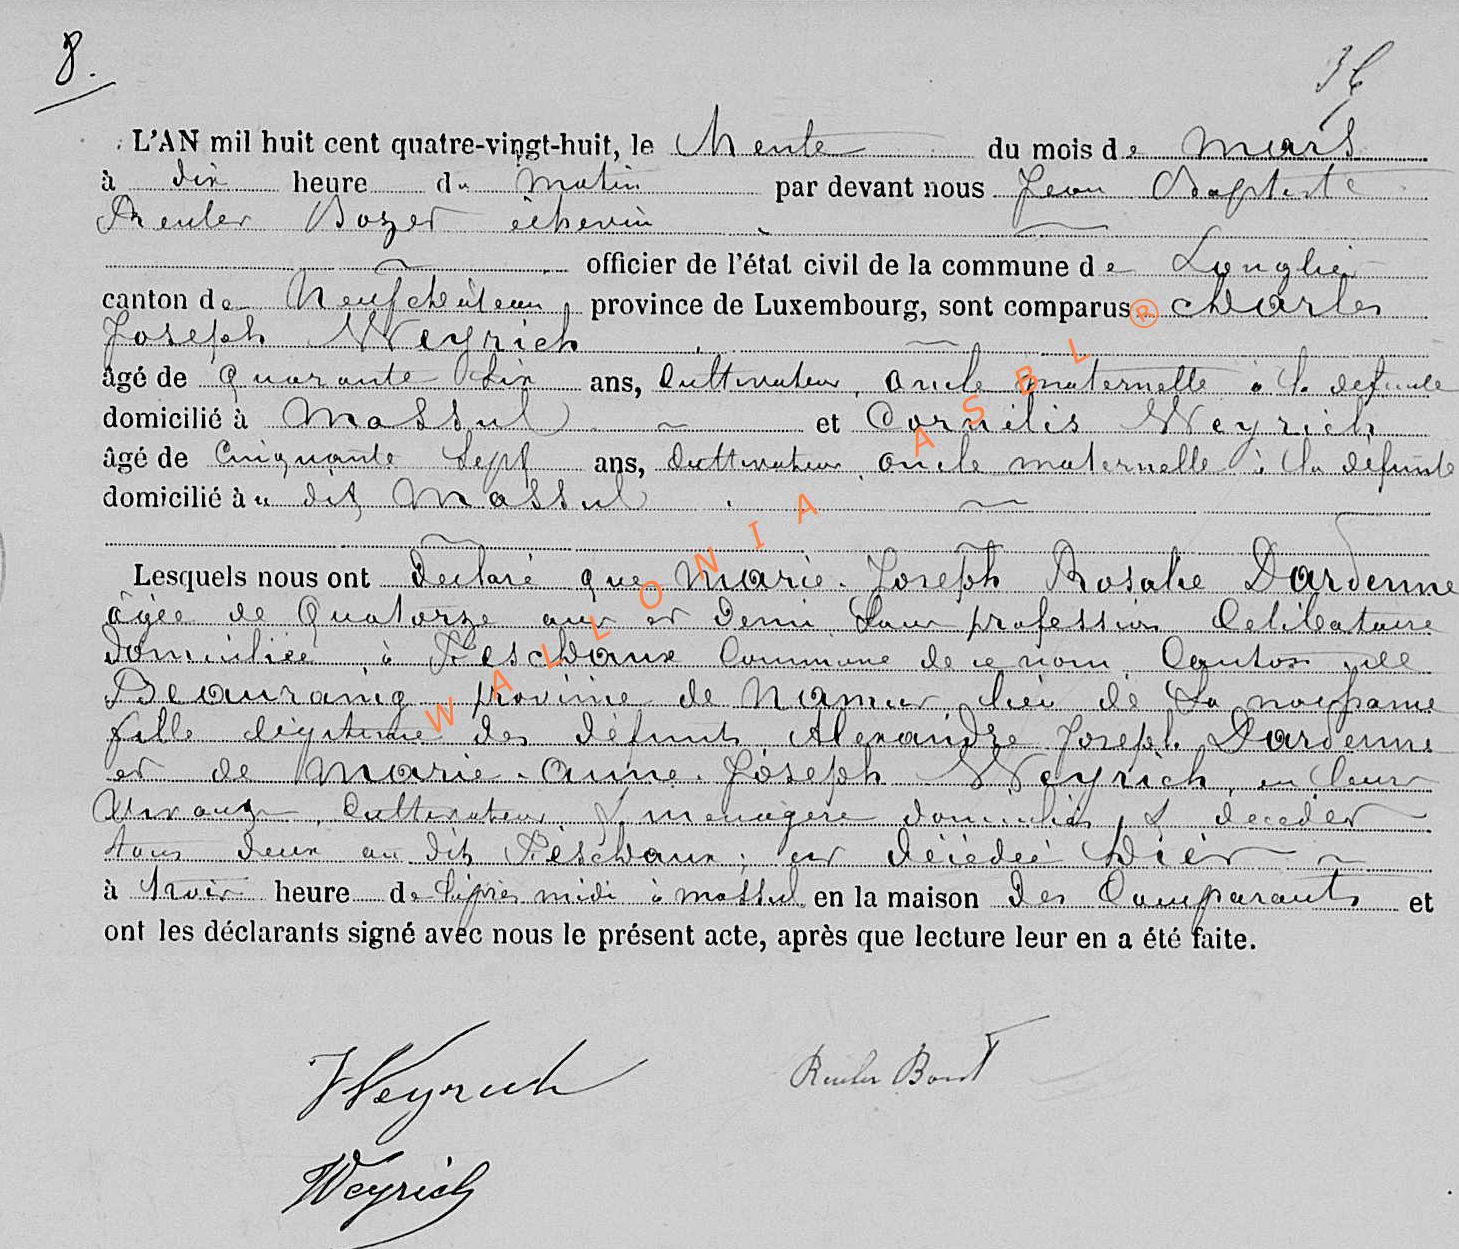 8.
36
L'AN mil huit cent quatre-vingt-huit, le trente du mois de mars
à dix heure du matin par devant nous Jean Baptiste
Reuler Bozet échevin
officier de l'état civil de la commune de Longlier
canton de Neufchâteau, province de Luxembourg, sont comparus Charles
Joseph Weyrich
âgé de quarante six ans, Cultivateur, oncle maternelle à la defunte
domicilié à Massul et Cornélis Weyrich
âgé de Cinquante Sept ans, Cultivateur, oncle maternelle à la défunte
domicilié àu dit Massul
Lesquels nous ont declaré que Marie-Joseph Rosalie Dardenne
âgée de Quatorze ans et demi Sans profession Celibataire
domiciliée à Commune de ce nom Canton de
Beauraing province de Namur, née de
fille légitime des défunts Alexandre Joseph Dardenne
et de Marie-Anne-Joseph Weyrich, en leur
vivant, Cultivateur & menagère domiciliés & decedés
tous deux au dit est décédée hier
à trois heure de l'apres midi à Massul en la maison des Comparants et
ont les déclarants signé avec nous le présent acte, après que lecture leur en a été faite.
Weyrich
Reuler Bozet
Weyrich
WALLONIA ASBL ®